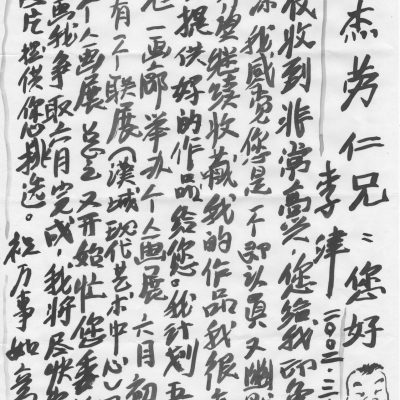 杰劳仁兄：您好
李津
二〇〇二．三
收到非常高兴，您给我印象
深我感觉您是一个即认真又幽默
继续收藏我的作品我很
提供好的作品给您。我计划五
一画廊举办个人画展六月初
有一个联展(汉城现代艺术中心)
个人画展总之又开始忙您委
画我争取六月完成，我将尽快
片提供您挑选。祝万事如意